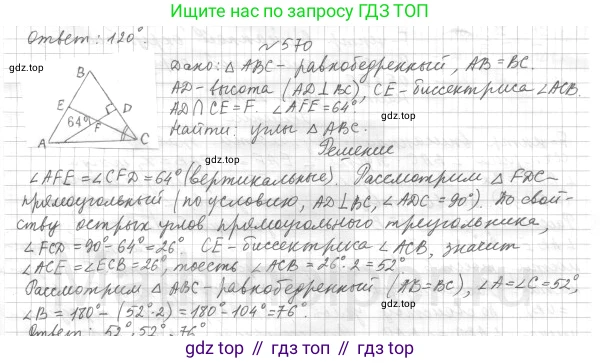 Ищите нас по запросу ГДЗ ТОП
Ответ: 120°.
№570
gdz.top
gdz.top
gdz.top
Дано: △ ABC - равнобедренный, AB = BC.
AD - высота (AD⊥BC), CE - биссектриса ∠ACB.
AD∩CE = F. ∠AFE = 64°
Найти: углы △ ABC.
Решение
B
E
D
64°
F
A
C
∠AFE = ∠CFD = 64° (вертикальные). Рассмотрим △ FDC -
прямоугольный (по условию, AD⊥BC, ∠ADC = 90°). По свой-
ству острых углов прямоугольного треугольника,
∠FCD = 90° - 64° = 26°. CE - биссектриса ∠ACB, значит
∠ACE = ∠ECB = 26°, то есть ∠ACB = 26°·2 = 52°
Рассмотрим △ ABC - равнобедренный (AB = BC), ∠A = ∠C = 52°,
∠B = 180° - (52°·2) = 180° - 104° = 76°.
Ответ: 52°; 52°; 76°
gdz.top
gdz.top
gdz.top
gdz.top
gdz.top // gdz.top // gdz.top